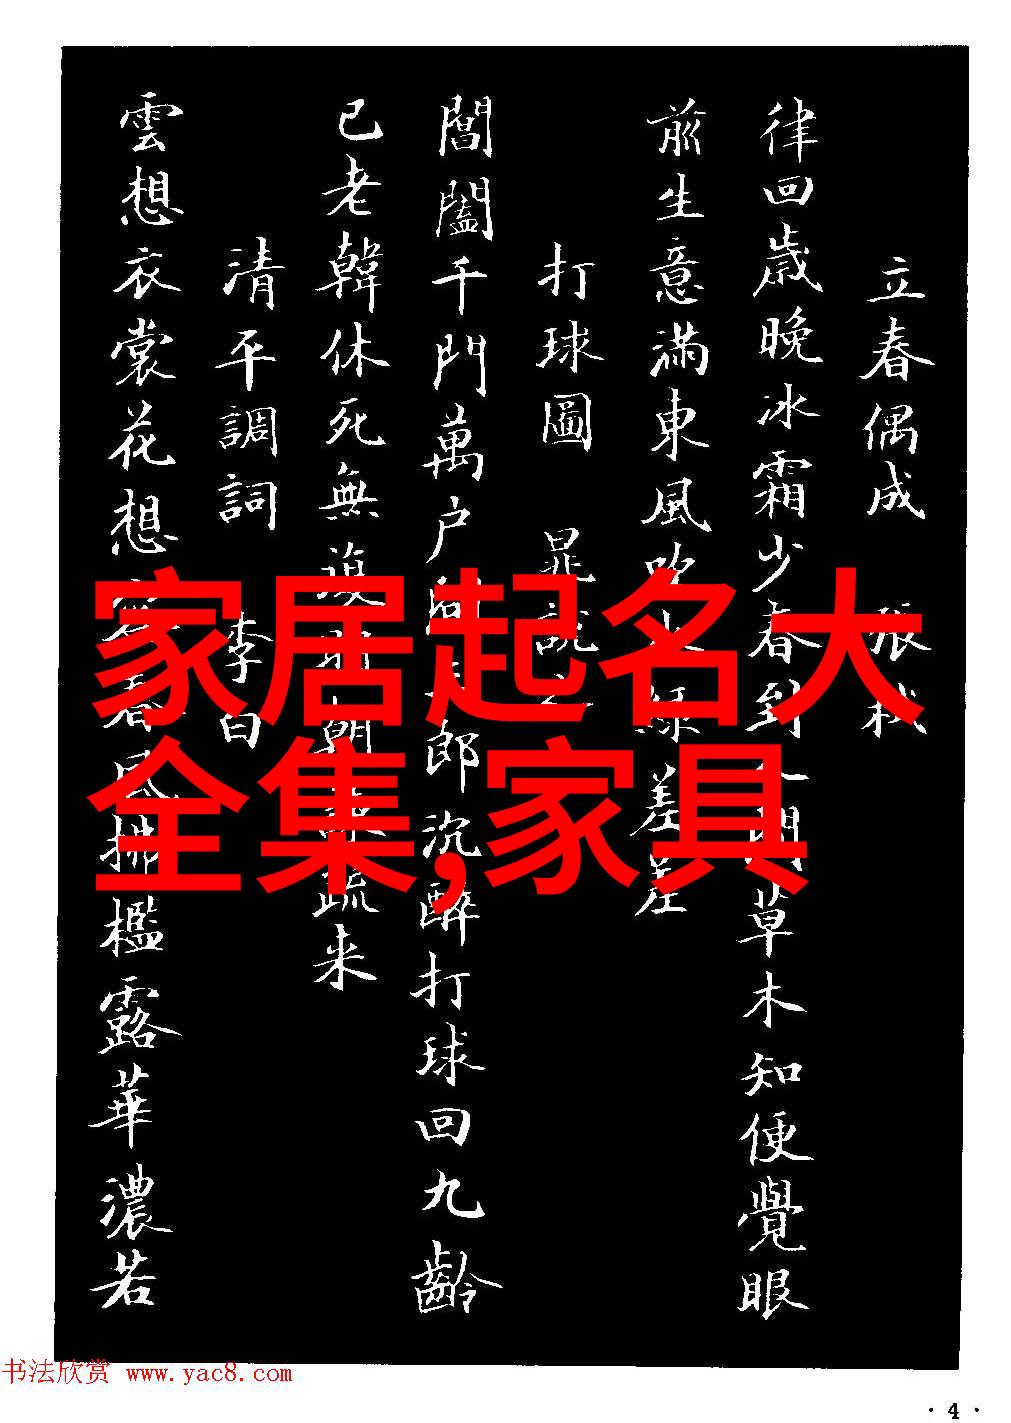 立春偶成 張栻
律回歲晚冰霜少春到人間草木知便覺眼
前生意滿東風吹水綠差差
打球圖 晁說之
閶闔千門萬户開三郎沉醉打球回九齡
已老韓休死無復明朝諫疏来
清平調詞 李白
雲想衣裳花想容春風拂檻露華濃若
家居起名大
全集,家具
书法欣赏 www.yac8.com
· 4 ·